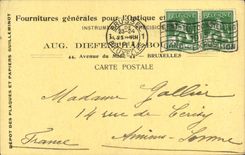 Fournitures générales pour l'Optique et
INSTRUMENTS
AUG. DIEFENTHAL-BO
44, Avenue du Midi, 44 — BRUXELLES
CARTE POSTALE
DÉPOT DES PLAQUES ET PAPIERS GUILLEMINOT
Madame Gallier
14 rue de Cerisy
Amiens - Somme
France